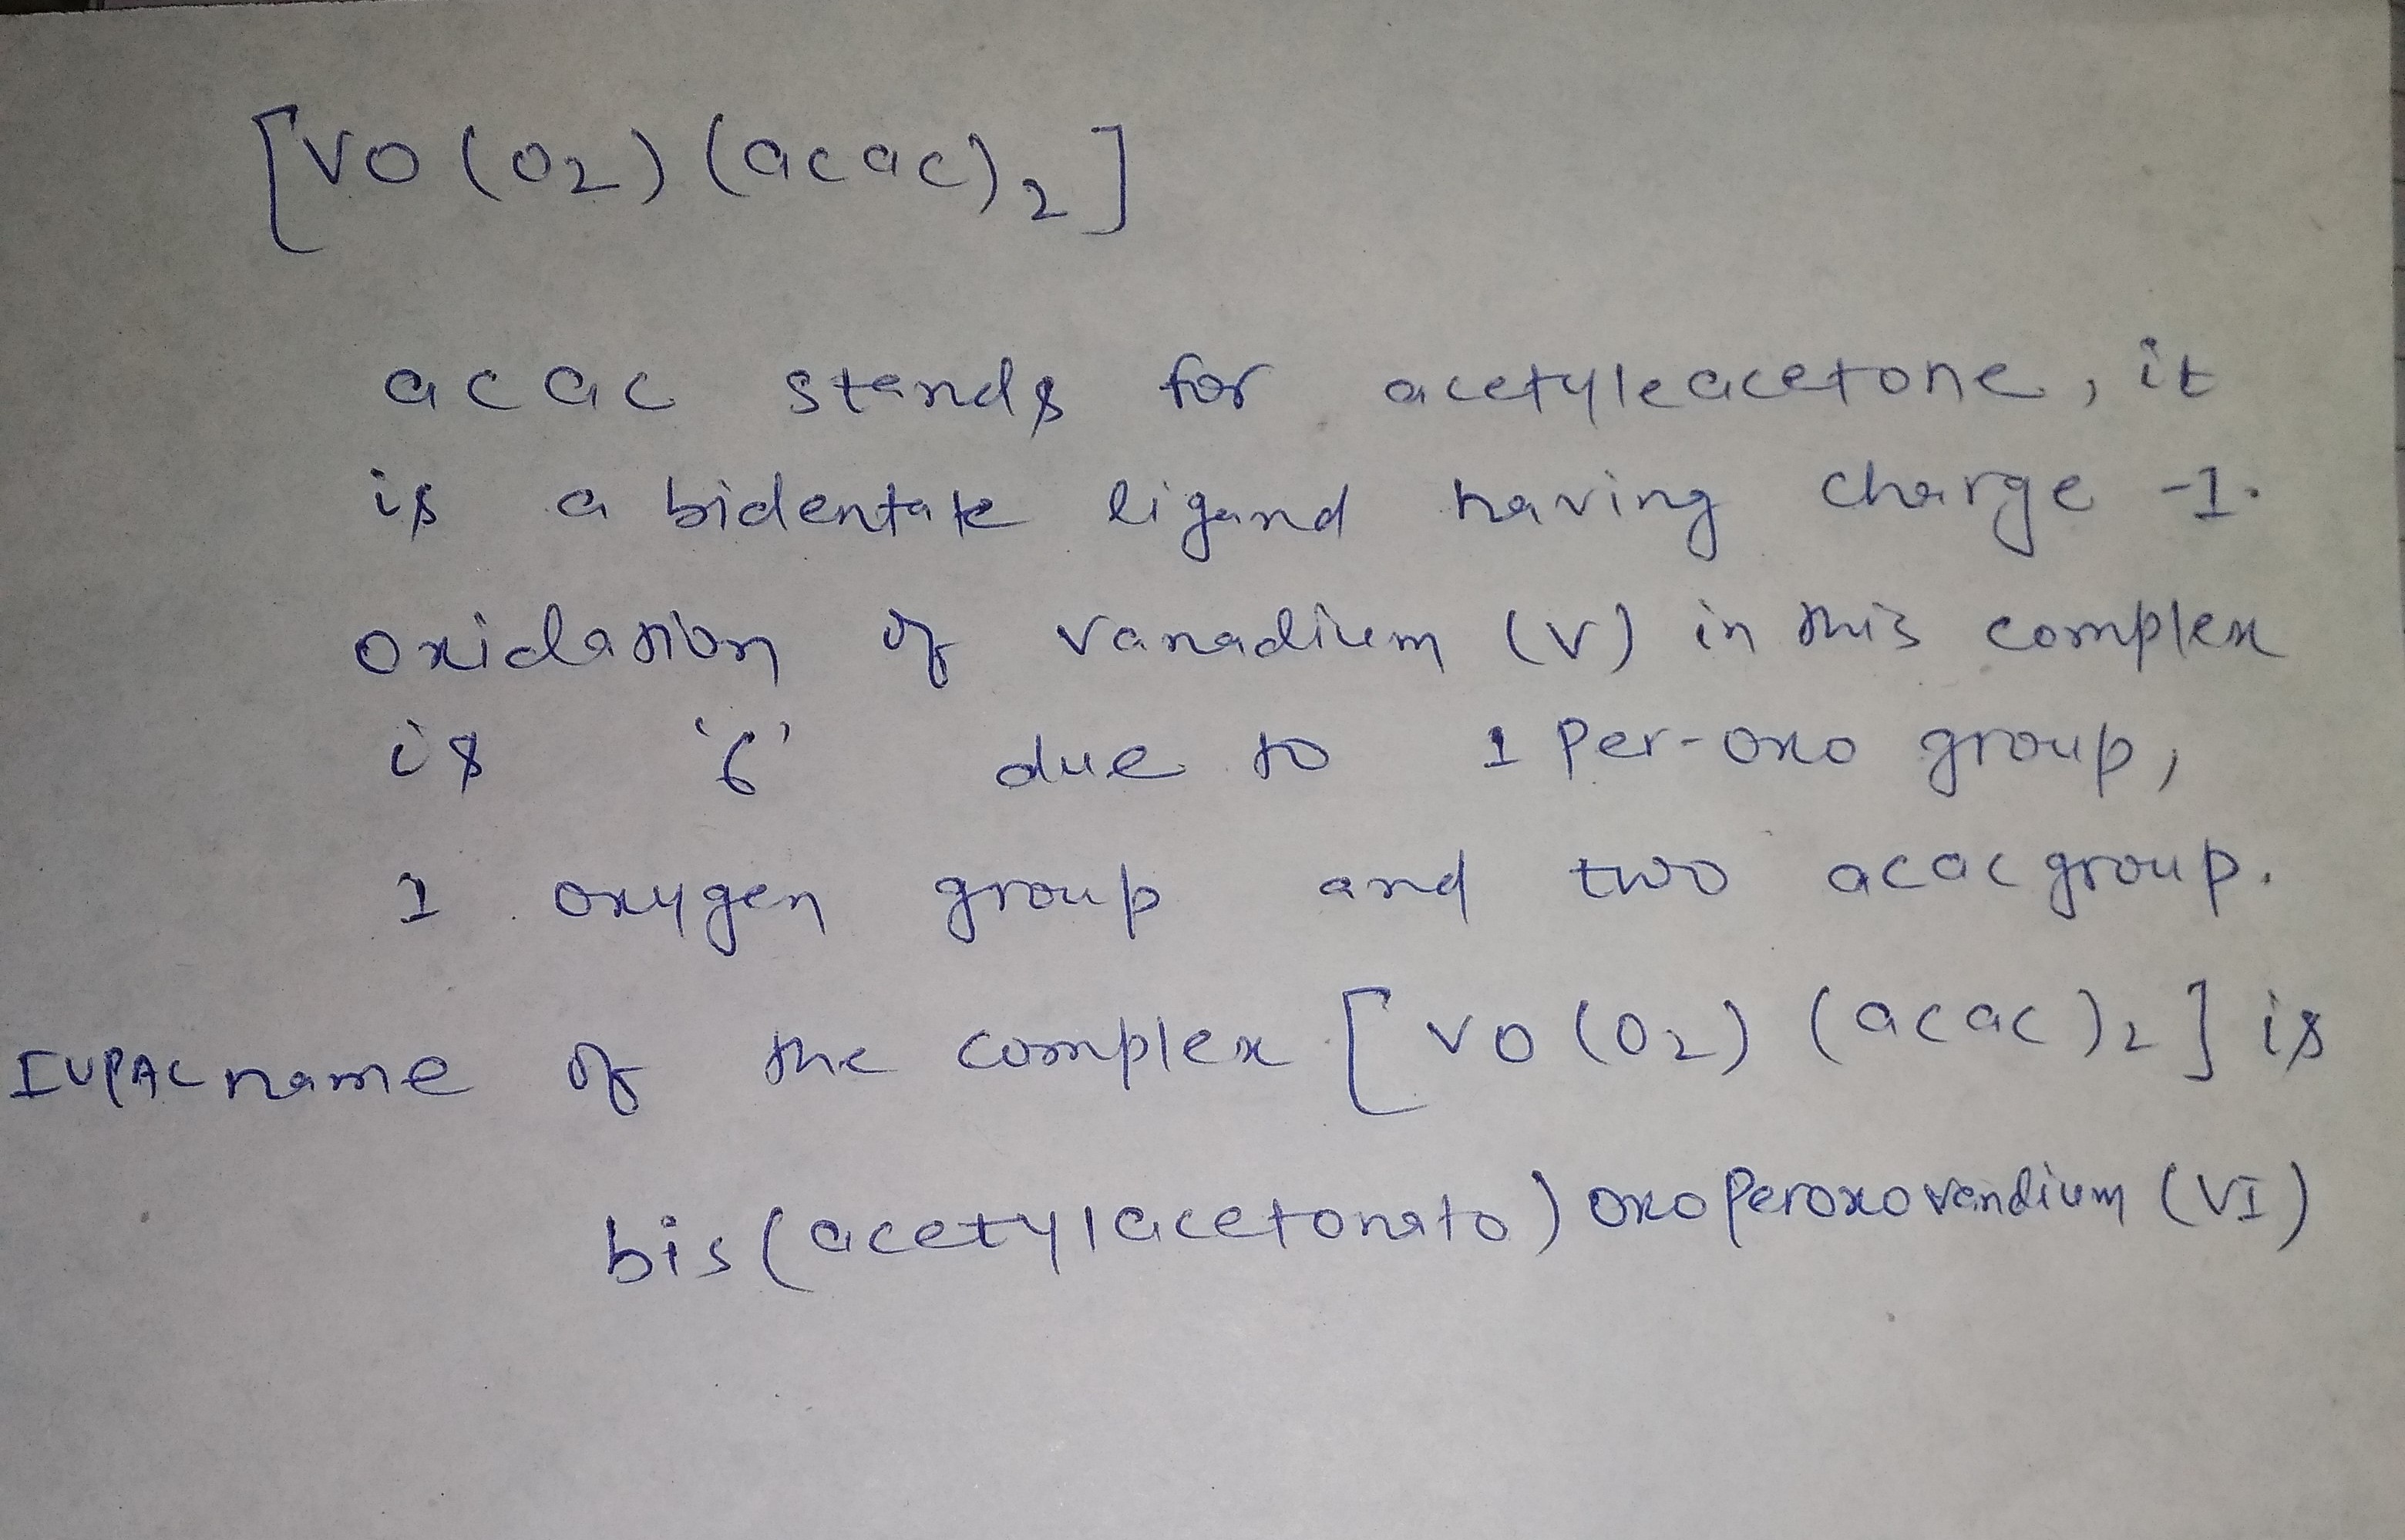 [VO(O2)(acac)2]
acac stands for acetyleacetone, it
is a bidentate ligand having charge -1.
oxidation of vanadium (V) in this complex
is '6' due to 1 per-oxo group,
1 oxygen group and two acac group.
IUPAC name of the complex [VO(O2)(acac)2] is
bis(acetylacetonato)oxoperoxovandium(VI)